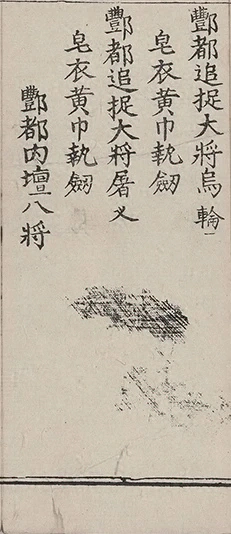 酆都追捉大將烏輪
皂衣黃巾執劒
酆都追捉大將屠乂
皂衣黃巾執劒
酆都内壇八将